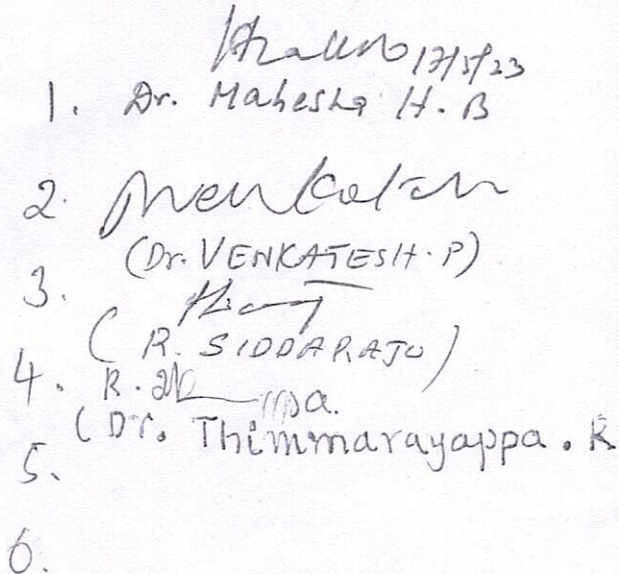 17/5/23
1. Dr. Mahesha H.B
2.
(Dr. VENKATESH.P)
3.
(R. SIDDARAJU)
4.
(Dr. Thimmarayappa . R
5.
6.